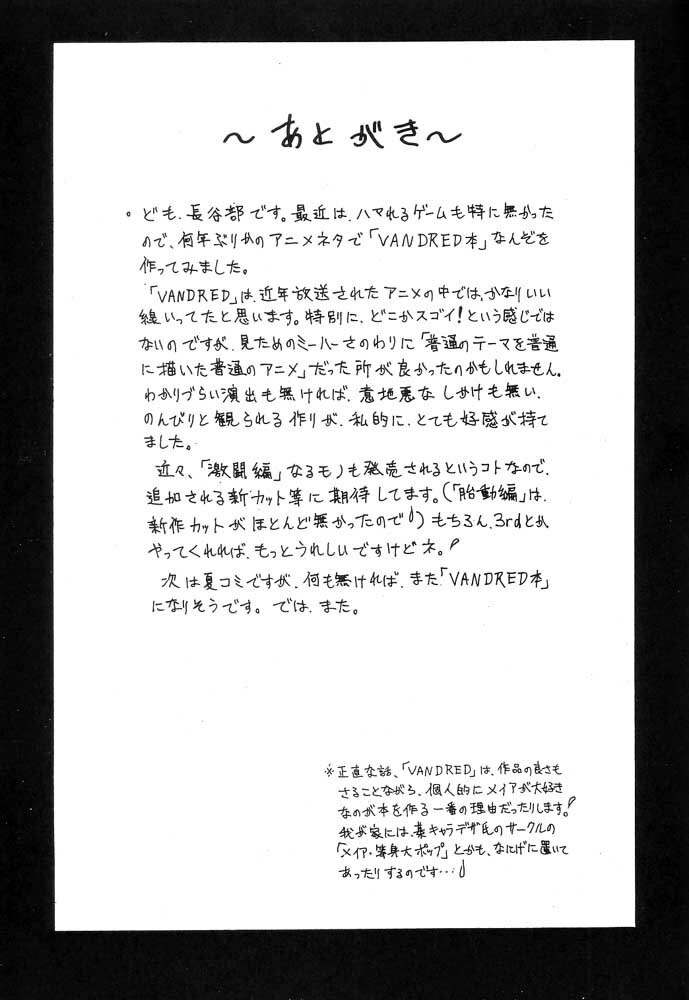 ～あとがき～
。ども、長谷部です。最近は、ハマれるゲームも特に無かった
ので、何年ぶりかのアニメネタで「VANDRED本」なんぞを
作ってみました。
「VANDRED」は、近年放送されたアニメの中では、かなりいい
線いってたと思います。特別に、どこかスゴイ!という感じでは
ないのですが、見ためのミーハーさのわりに「普通のテーマを普通
に描いた普通のアニメ」だった所が良かったのかもしれません。
わかりづらい演出も無ければ、意地悪なしかけも無い、
のんびりと観られる作りが、私的に、とても好感が持て
ました。
近々、「激闘編」なるモノも発売されるというコトなので、
追加される新カット等に期待してます。(「胎動編」は、
新作カットがほとんど無かったので) もちろん、3rdとか
やってくれれば、もっとうれしいですけどネ。
次は夏コミですが、何も無ければ、また「VANDRED本」
になりそうです。では、また。
※正直な話、「VANDRED」は、作品の良さも
さることながら、個人的にメイアが大好き
なのが本を作る一番の理由だったりします。
我が家には、某キャラデザ氏のサークルの
「メイア・等身大ポップ」とかも、なにげに置いて
あったりするのです…